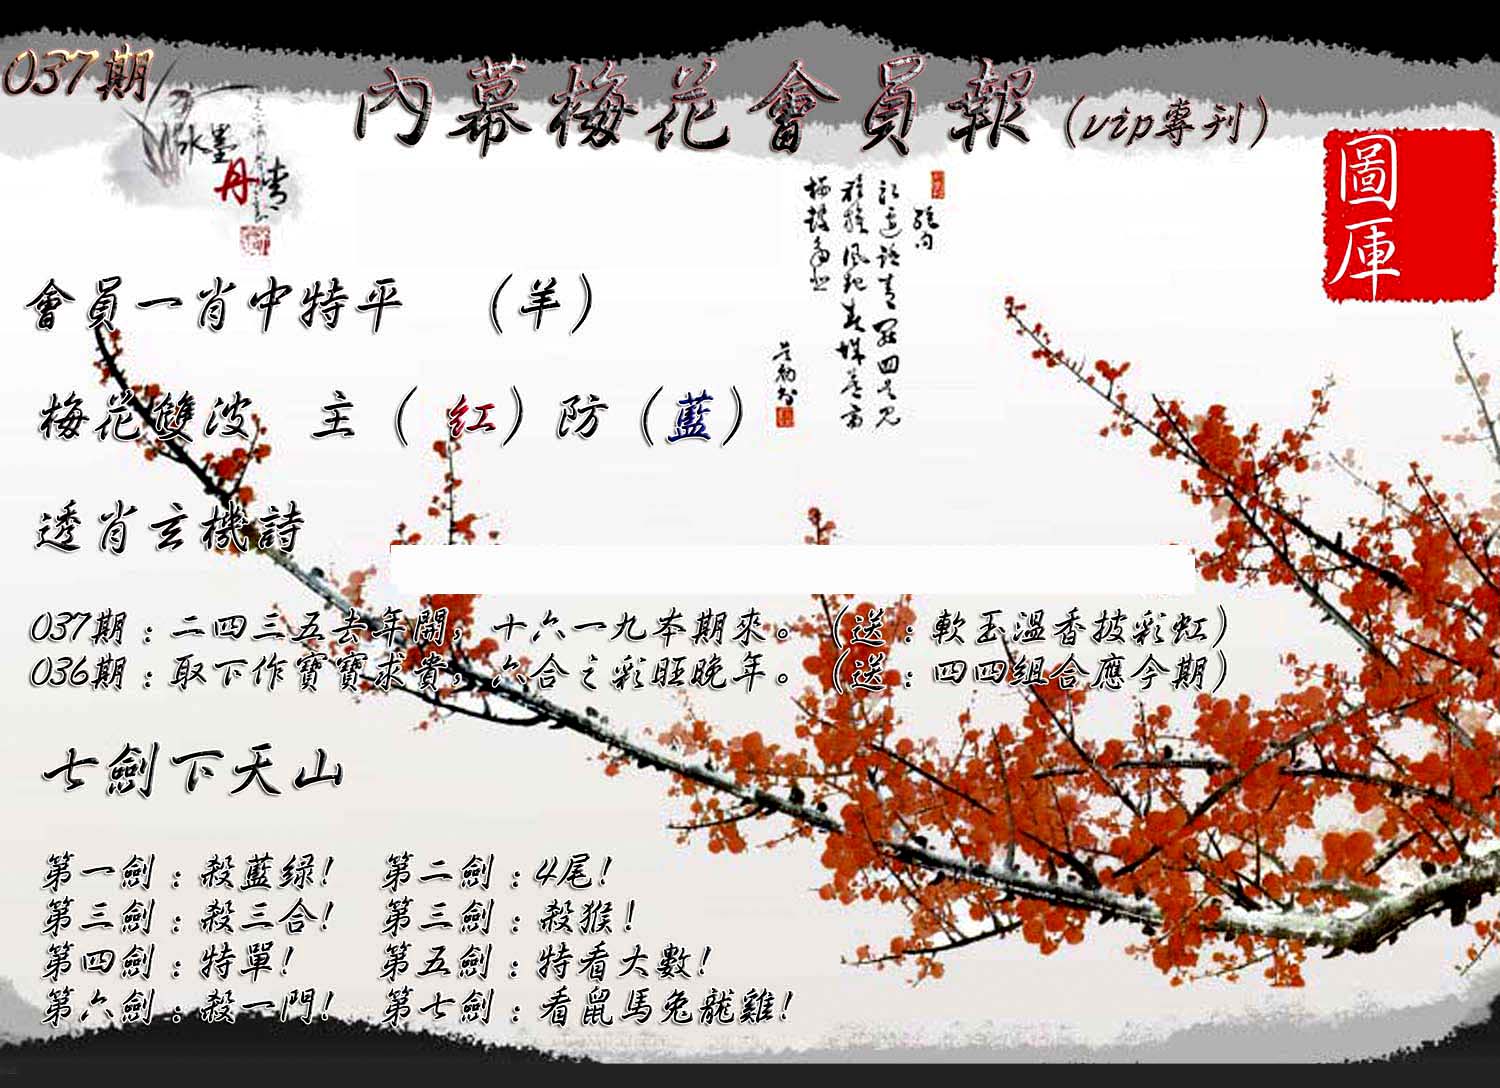 037期
內幕梅花會員報(vip專刊)
水墨
丹青
圖庫
會員一肖中特平 (羊)
梅花雙波 主(紅)防(藍)
透肖玄機詩
037期:二四三五去年開,十六一九本期來。(送:軟玉溫香披彩虹)
036期:取下作寶寶求貴,六合之彩旺晚年。(送:四四組合應今期)
七劍下天山
第一劍:殺藍绿! 第二劍:4尾!
第三劍:殺三合! 第三劍:殺猴!
第四劍:特單! 第五劍:特看大數!
第六劍:殺一門! 第七劍:看鼠馬兔龍雞!